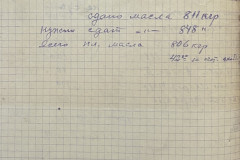 сдано масла 811 кгр
нужно сдать —"— 848 к.
всего пл. масла 806 кгр
42